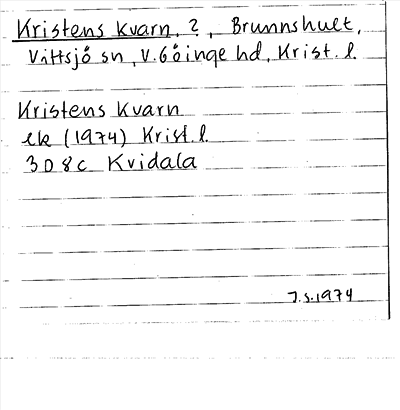 Kristens Kvarn, ?, Brunnshult,
Vittsjö sn, V. Göinge hd, Krist. l.
Kristens Kvarn
ek (1974) Krist. l.
3D 8c Kvidala
J.S. 1974